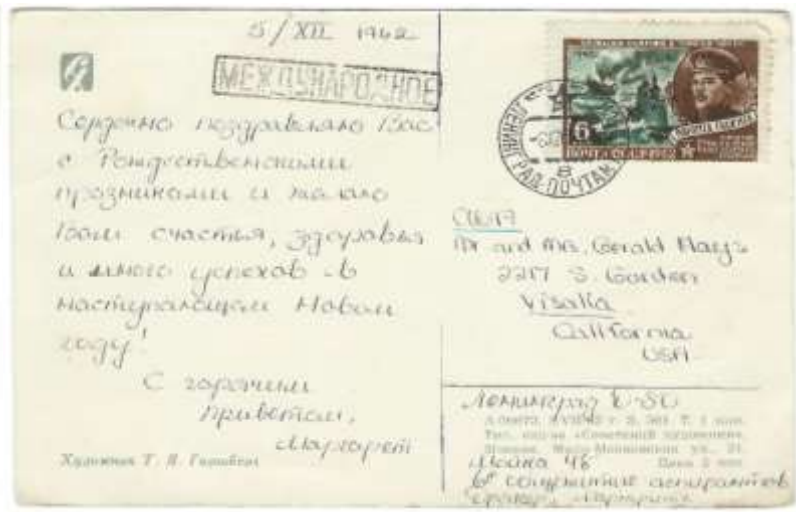 5/XII 1962
МЕЖДУНАРОДНОЕ
Сердечно поздравляю Вас
с Рождественскими
праздниками и желаю
Вам счастья, здоровья
и много успехов в
наступающем Новом
году!
С горячим
приветом,
Маргарет
Художник Т. В.
6
ПОЧТА СССР 1962
ЛЕНИНГРАД ПОЧТАМТ
8
США
Mr and Mrs. Gerald Mays
2217 S. Garden
Visalia
California
USA
Ленинград
Тип. изд-ва «Советский художник»
Москва, ул., 21
Мойка 48
общежитие аспирантов